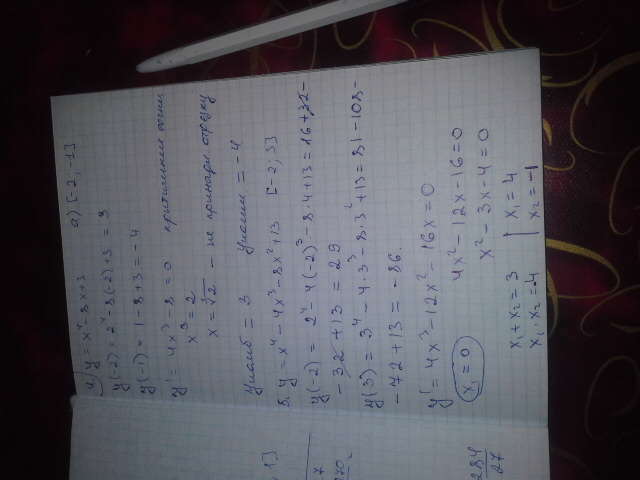 а) y = x⁴ - 8x + 3 а) [-2; -1]
y(-2) = 2⁴ - 8(-2) + 3 = 3
y(-1) = 1 - 8 + 3 = -4
y' = 4x³ - 8 = 0 критические точки
x³ = 2
x = ∛2 - не принадл отрезку
Yнаиб = 3 Yнаим = -4
б. y = x⁴ - 4x³ - 8x² + 13 [-2; 3]
y(-2) = 2⁴ - 4(-2)³ - 8·4 + 13 = 16 + 32 -
- 32 + 13 = 29
y(3) = 3⁴ - 4·3³ - 8·3² + 13 = 81 - 108 -
- 72 + 13 = -86.
y' = 4x³ - 12x² - 16x = 0
x₁ = 0 4x² - 12x - 16 = 0
x² - 3x - 4 = 0
x₁ + x₂ = 3 x₁ = 4
x₁ · x₂ = -4 x₂ = -1
1]
7
284
27